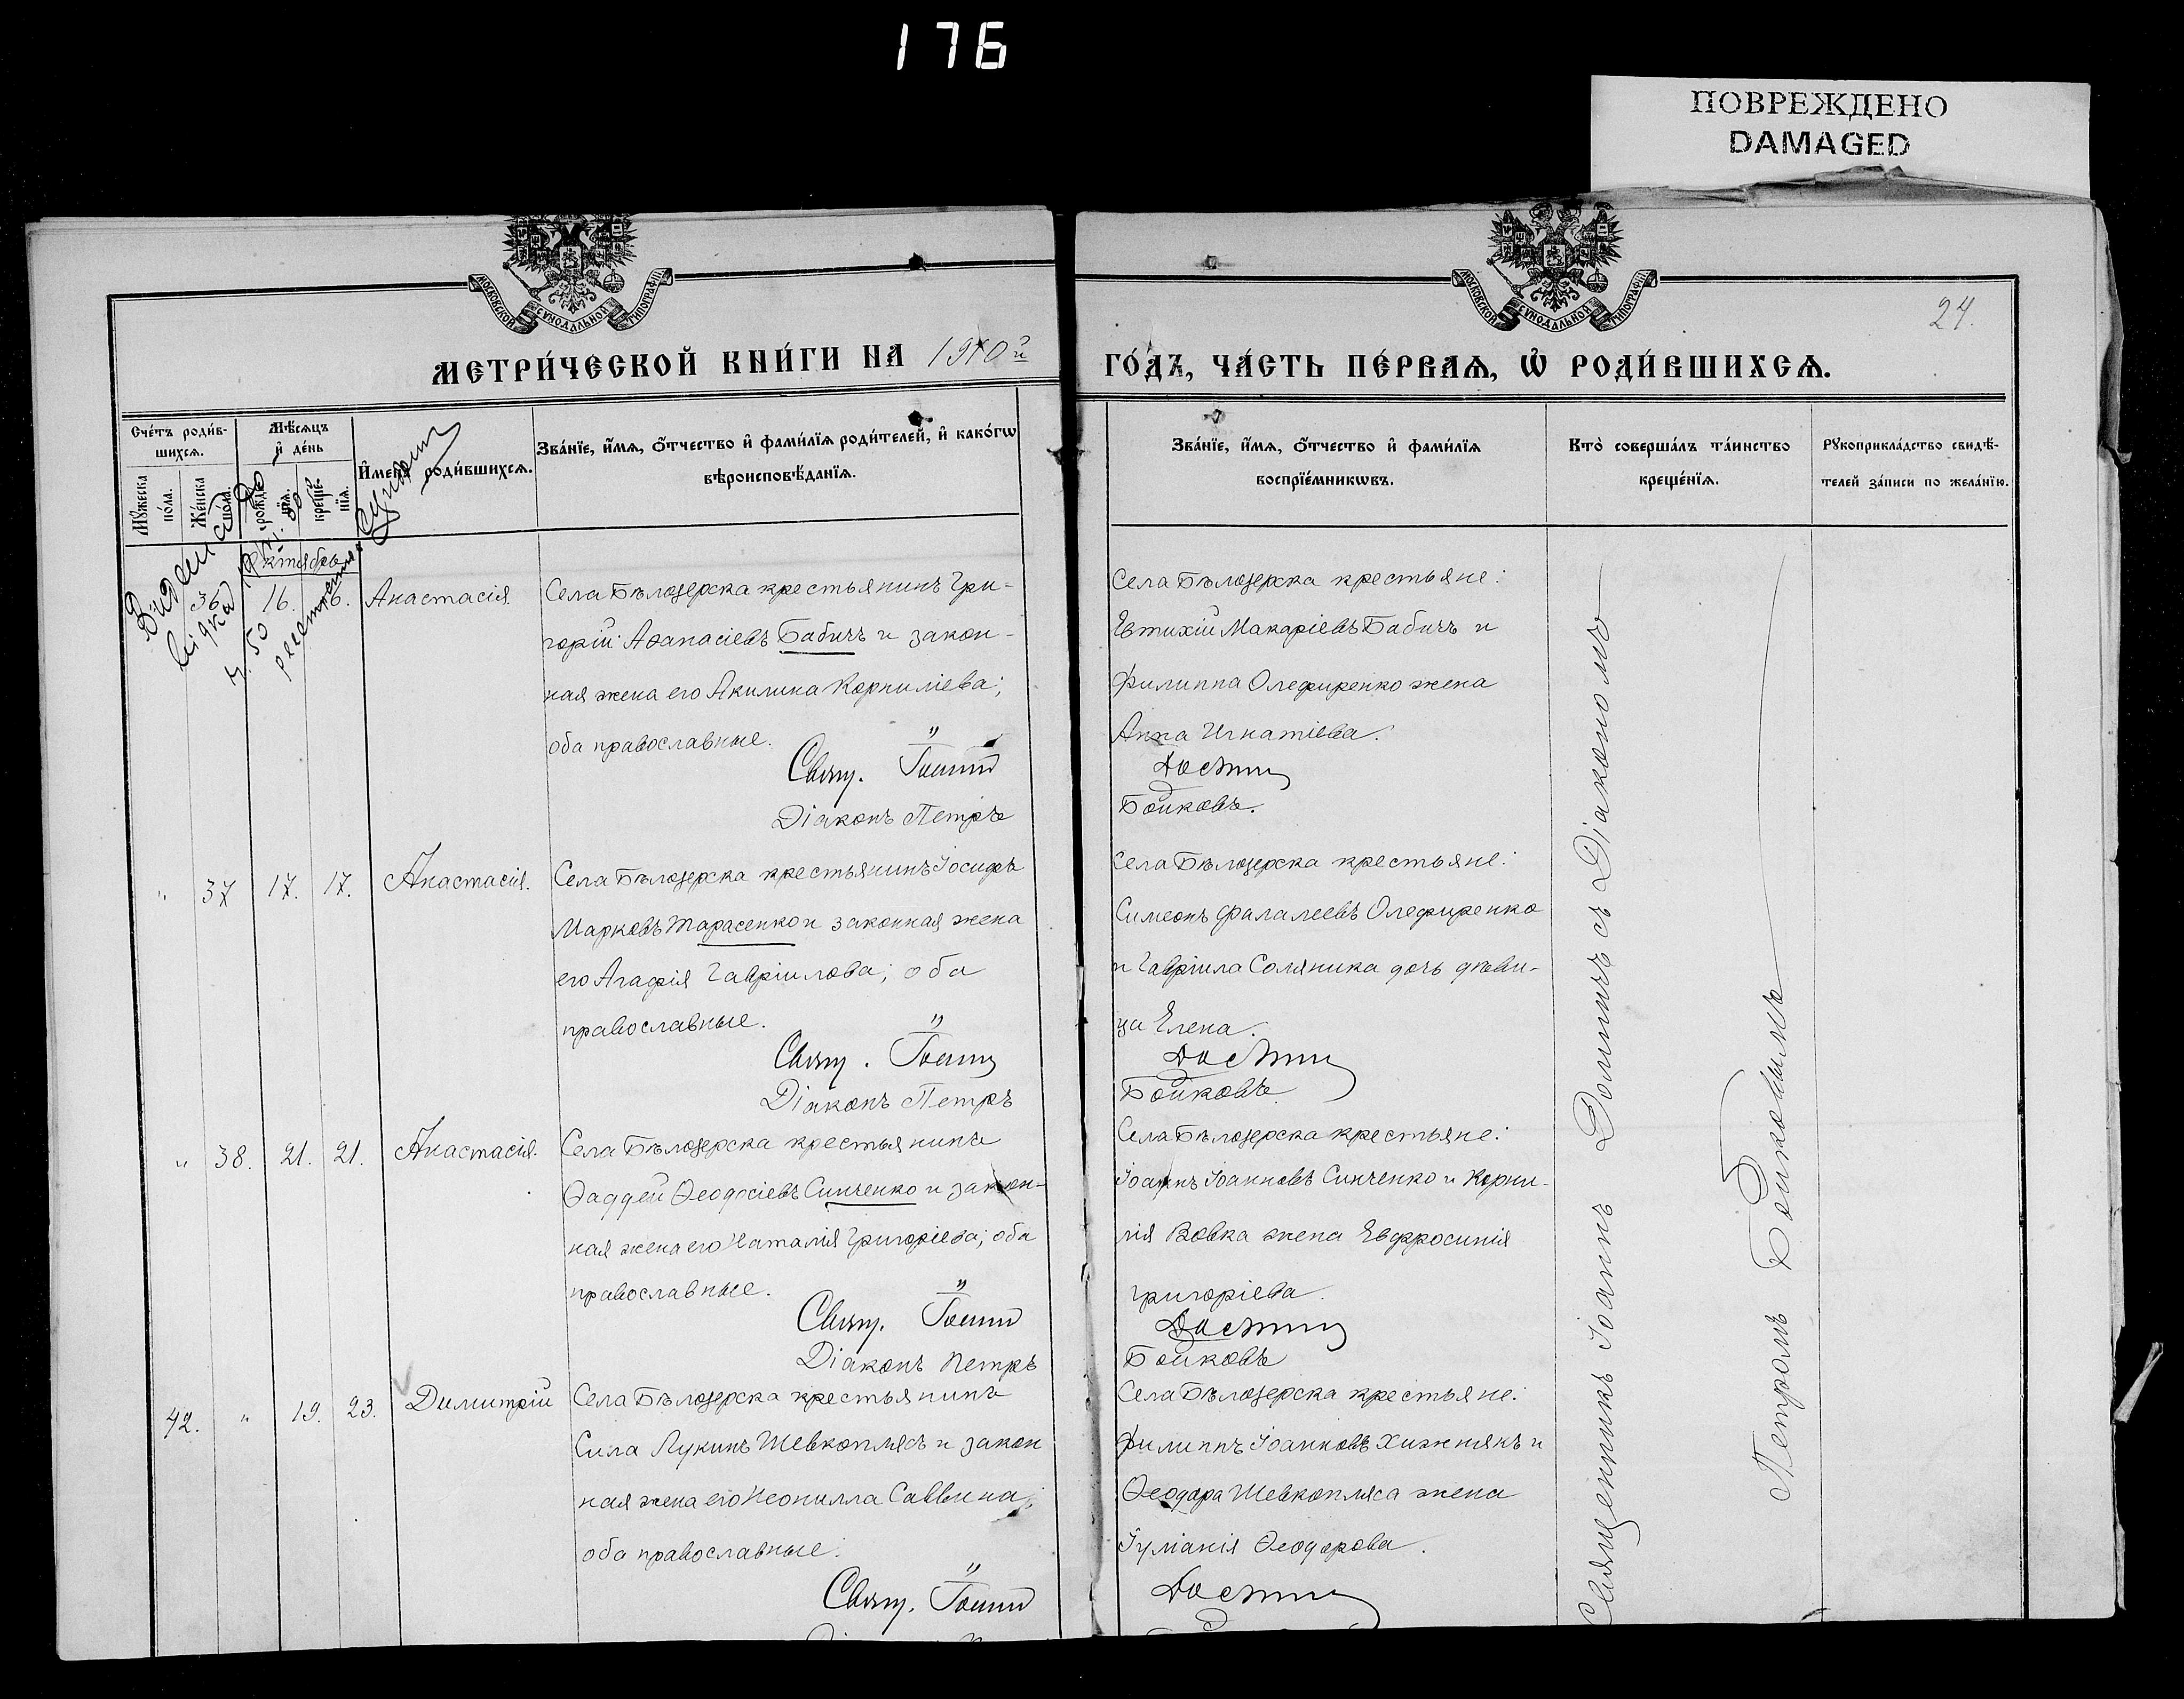 176
ПОВРЕЖДЕНО
DAMAGED
МОСКОВСКОЙ СѴНОДАЛЬНОЙ ТИПОГРАФІИ
МОСКОВСКОЙ СѴНОДАЛЬНОЙ ТИПОГРАФІИ
24.
МЕТРИ́ЧЕСКОЙ КНИ́ГИ НА 1910й
ГО́ДЪ, ЧА́СТЬ ПЕ́РВАѦ, Ѿ РОДИ́ВШИХСѦ.
Сче́тъ роди́в-
шихсѧ.
Мꙋжеска по́ла.
Же́нска по́ла.
Мѣ́сѧцъ
и҆ де́нь
рожде́нїѧ.
креще́-
нїѧ.
И҆мена̀ роди́вшихсѧ.
Зва́нїе, и҆́мѧ, ѻ҆́тчество и҆ фами́лїѧ роди́телей, и҆ како́гѡ
вѣроисповѣ́данїѧ.
Зва́нїе, и҆́мѧ, ѻ҆́тчество и҆ фами́лїѧ
воспрїе́мникѡвъ.
Кто̀ соверша́лъ та́инство
креще́нїѧ.
Рꙋкоприкла́дство свидѣ́-
телей за́писи по жела́нїю.
Октябрь
36. 16. 16. Анастасія.
Села Бѣлозерска крестьянинъ Гри-
горій Аѳанасіевъ Бабичъ и закон-
ная жена его Акилина Корниліева;
оба православные.
Свящ. Іоаннъ
Діаконъ Петръ
Села Бѣлозерска крестьяне:
Евтихій Макаріевъ Бабичъ и
Филиппа Олефиренко жена
Анна Игнатіева.
Бойковъ.
" 37 17. 17. Анастасія.
Села Бѣлозерска крестьянинъ Іосифъ
Марковъ Тарасенко и законная жена
его Агафія Гавріилова; оба
православные.
Свящ. Іоаннъ
Діаконъ Петръ
Села Бѣлозерска крестьяне:
Симеонъ Фалалеевъ Олефиренко
и Гавріила Соляника дочь дѣви-
ца Елена.
Бойковъ
" 38. 21. 21. Анастасія.
Села Бѣлозерска крестьянинъ
Ѳаддей Ѳеодосіевъ Синченко и закон-
ная жена его Наталія Григоріева; оба
православные.
Свящ. Іоаннъ
Діаконъ Петръ
Села Бѣлозерска крестьяне:
Іоаннъ Іоанновъ Синченко и Корни-
лія Вовка жена Евфросинія
Григоріева.
Бойковъ
42. " 19. 23. Димитрій
Села Бѣлозерска крестьянинъ
Сила Лукинъ Шевкоплясъ и закон
ная жена его Неонилла Саввина;
оба православные.
Свящ. Іоаннъ
Села Бѣлозерска крестьяне:
Филиппъ Іоанновъ Хижнякъ и
Ѳеодора Шевкопляса жена
Іуліанія Ѳеодорова.
Священникъ Іоаннъ съ Діакономъ
Петромъ Бойковымъ